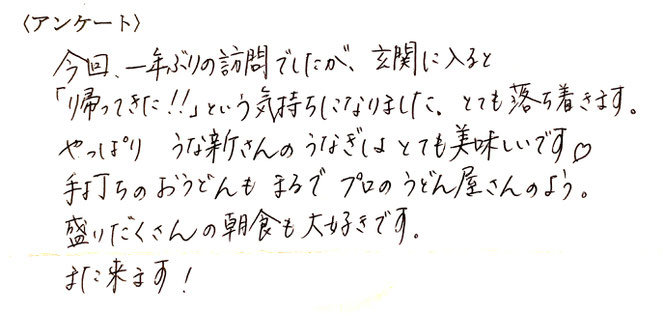 〈アンケート〉
今回、一年ぶりの訪問でしたが、玄関に入ると
「帰ってきた!!」という気持ちになりました。とても落ち着きます。
やっぱり うな新さんのうなぎはとても美味しいです♡
手打ちのおうどんもまるでプロのうどん屋さんのよう。
盛りだくさんの朝食も大好きです。
また来ます!